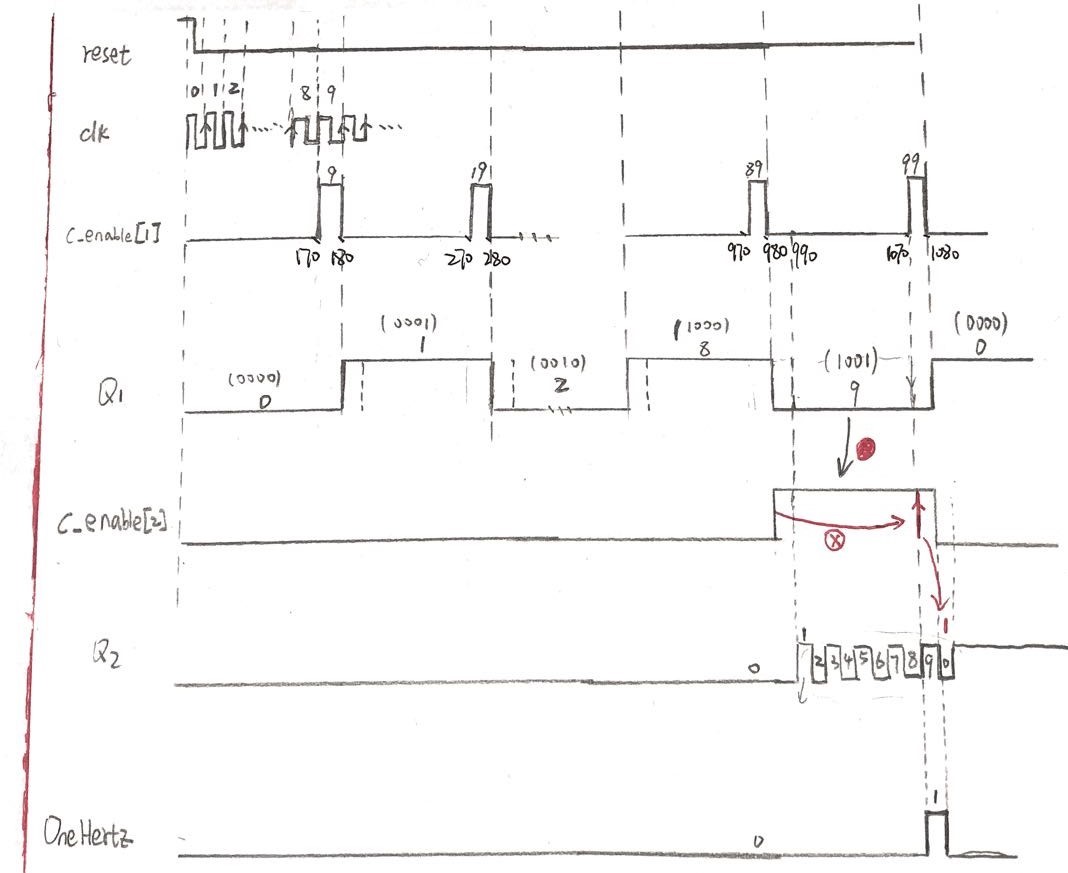 reset
0 1 2 8 9
clk
9 19 89 99
C_enable[1]
170 180 270 280 970 980 990 1070 1080
(0001) (1000) (0000)
1 8 0
(0000) (0010) (1001)
0 2 9
Q1
C_enable[2]
x
1
1
Q2
0 2 3 4 5 6 7 8 9 0
1
OneHertz
0